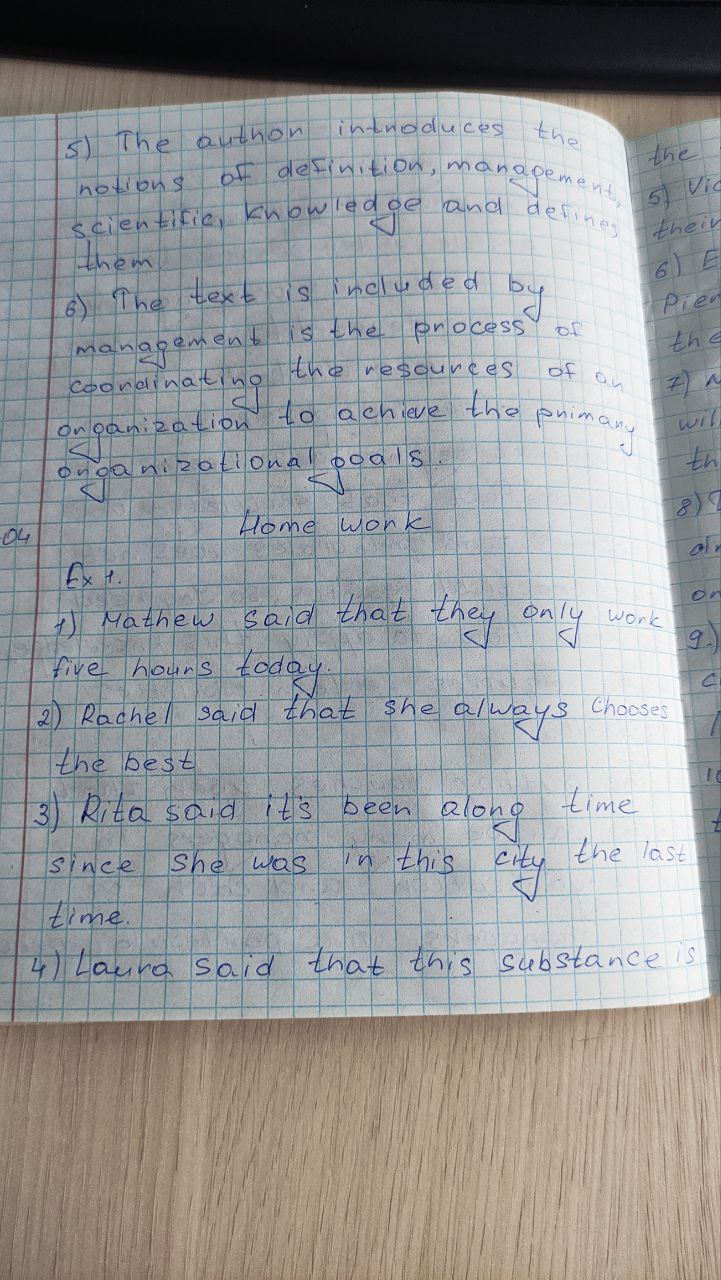 5) The author introduces the
notions of definition, management,
scientific, knowledge and defines
them
6) The text is included by
management is the process of
coordinating the resources of an
organization to achieve the primary
organizational goals.
04
Home work
Ex 1.
1) Mathew said that they only work
five hours today.
2) Rachel said that she always chooses
the best
3) Rita said it's been along time
since she was in this city the last
time.
4) Laura said that this substance is
the
5)
their
6)
the
7)
8)
on
9)